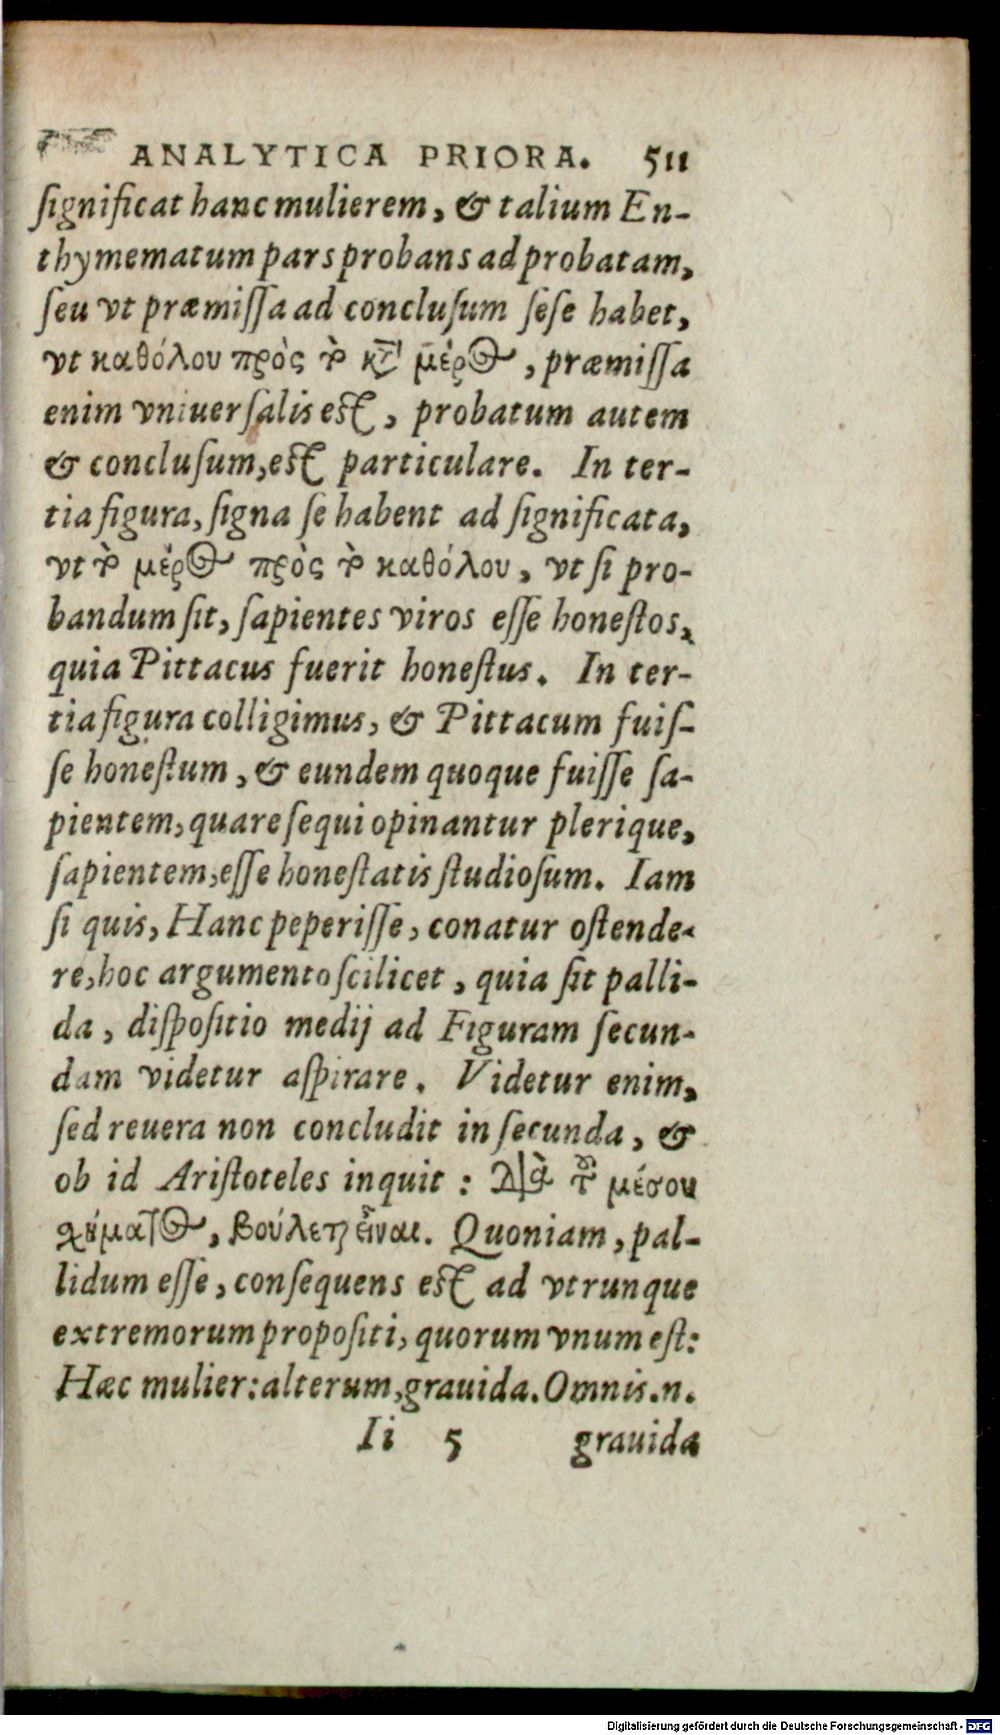 ANALYTICA PRIORA. 511
ſignificat hanc mulierem, & talium En-
thymematum pars probans ad probatam,
ſeu vt præmiſſa ad concluſum ſeſe habet,
vt καθόλου πρὸς τὸ κτ̀ μέρος, præmiſſa
enim vniuerſalis est, probatum autem
& concluſum, est particulare. In ter-
tia figura, ſigna ſe habent ad ſignificata,
vt τὸ μέρος πρὸς τὸ καθόλου, vt ſi pro-
bandum ſit, ſapientes viros eſſe honeſtos,
quia Pittacus fuerit honeſtus. In ter-
tia figura colligimus, & Pittacum fuiſ-
ſe honeſtum, & eundem quoque fuiſſe ſa-
pientem, quare ſequi opinantur plerique,
ſapientem, eſſe honeſtatis ſtudioſum. Iam
ſi quis, Hanc peperiſſe, conatur oſtende-
re, hoc argumento ſcilicet, quia ſit palli-
da, diſpoſitio medij ad Figuram ſecun-
dam videtur aſpirare. Videtur enim,
ſed reuera non concludit in ſecunda, &
ob id Ariſtoteles inquit: διὰ τοῦ μέσου
χήματος, βούλεται εἶναι. Quoniam, pal-
lidum eſſe, conſequens est ad vtrunque
extremorum propoſiti, quorum vnum eſt:
Hæc mulier: alterum, grauida. Omnis.n.
Ii 5 grauida
Digitalisierung gefördert durch die Deutsche Forschungsgemeinschaft - DFG